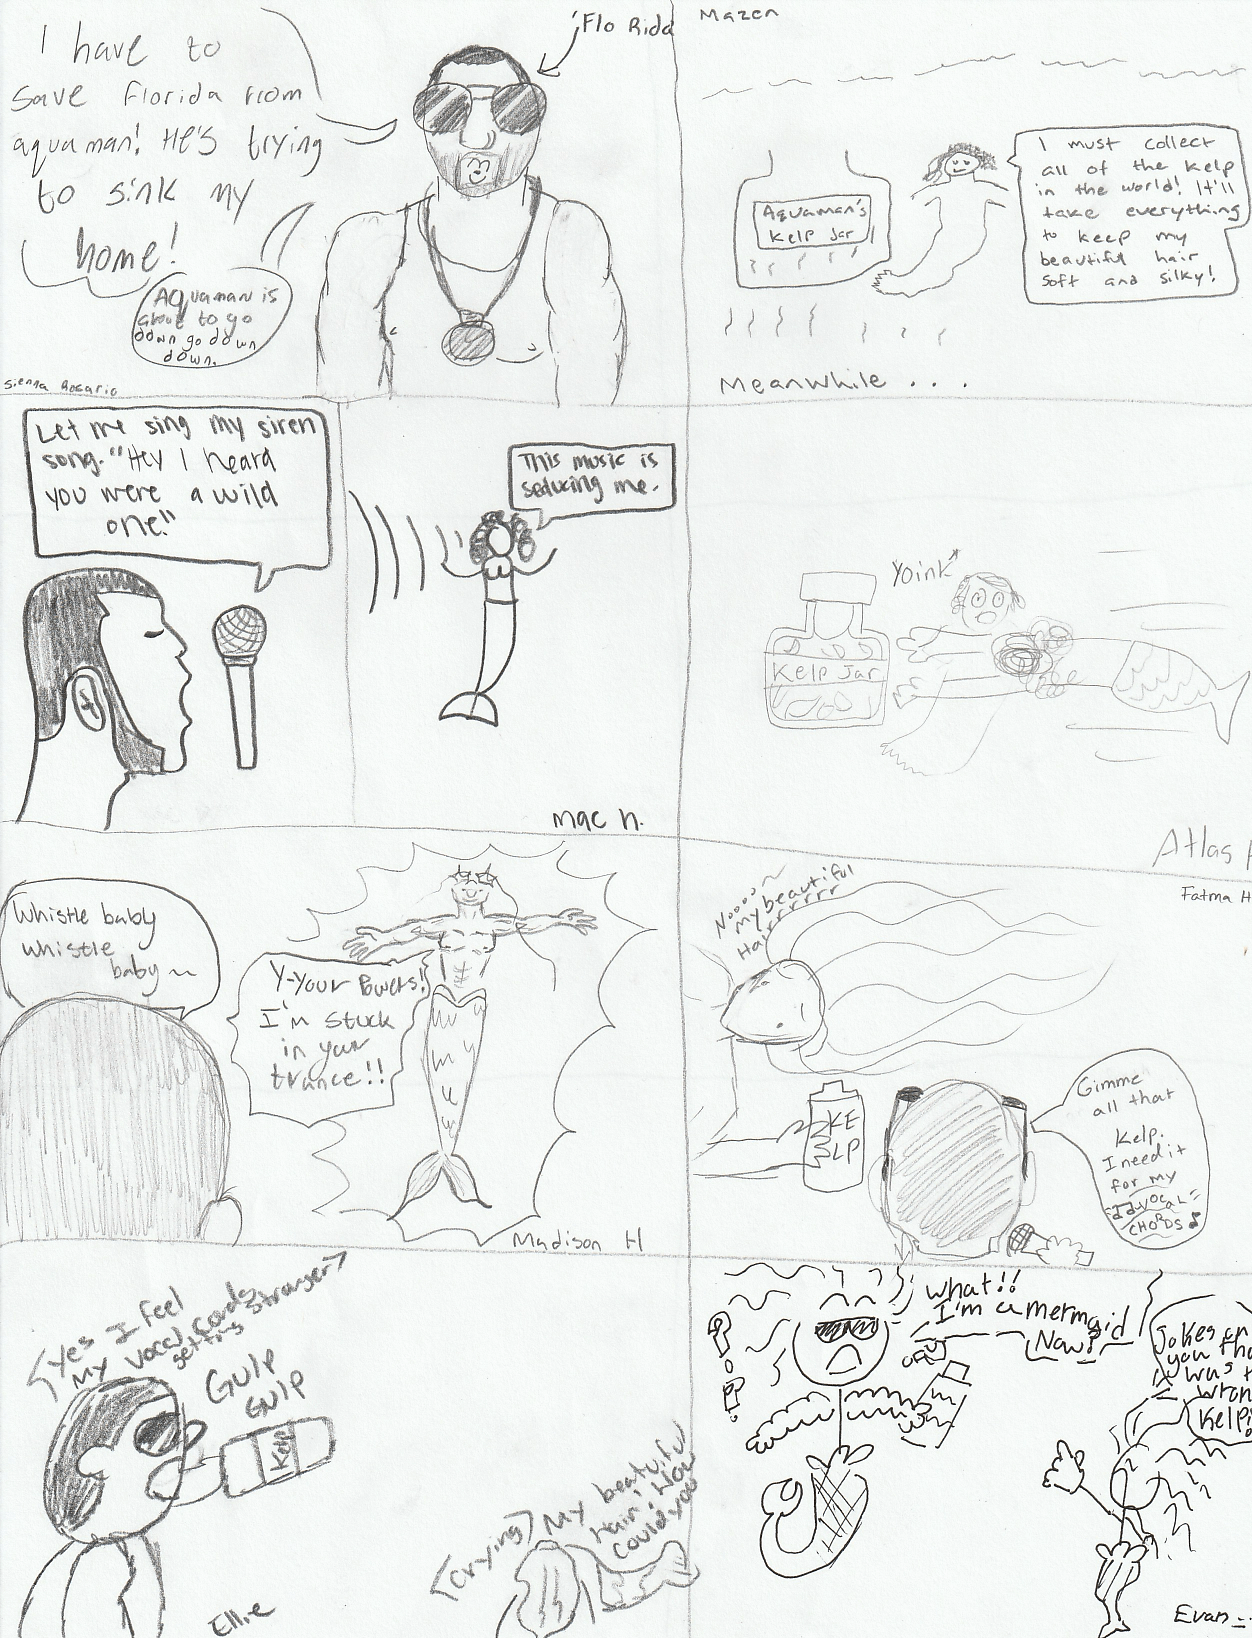 I have to
save Florida from
aquaman! He's trying
to sink my
home!
Aquaman is
about to go
down go down
down.
Flo Rida
Sienna Rosario
Mazen
Aquaman's
Kelp Jar
I must collect
all of the kelp
in the world! It'll
take everything
to keep my
beautiful hair
soft and silky!
Meanwhile . . .
Let me sing my siren
song. "Hey I heard
you were a wild
one."
This music is
seducing me.
Mac N.
Yoink
Kelp Jar
Atlas
Whistle baby
whistle
baby~
Y-Your Powers!
I'm stuck
in your
trance!!
Madison H
Fatma H
Nooooo~
My beautiful
Hairrrrrr
KE
LP
Gimme
all that
Kelp.
I need it
for my
VOCAL
CHORDS
Yes I feel
My vocal cords
getting stronger
Gulp
Gulp
Kelp
Ellie
[crying] My beatuifu
Hair! How
could you
What!!
I'm a mermaid
Now?
Jokes on
you tha
was t
wron
Kelp!
Evan